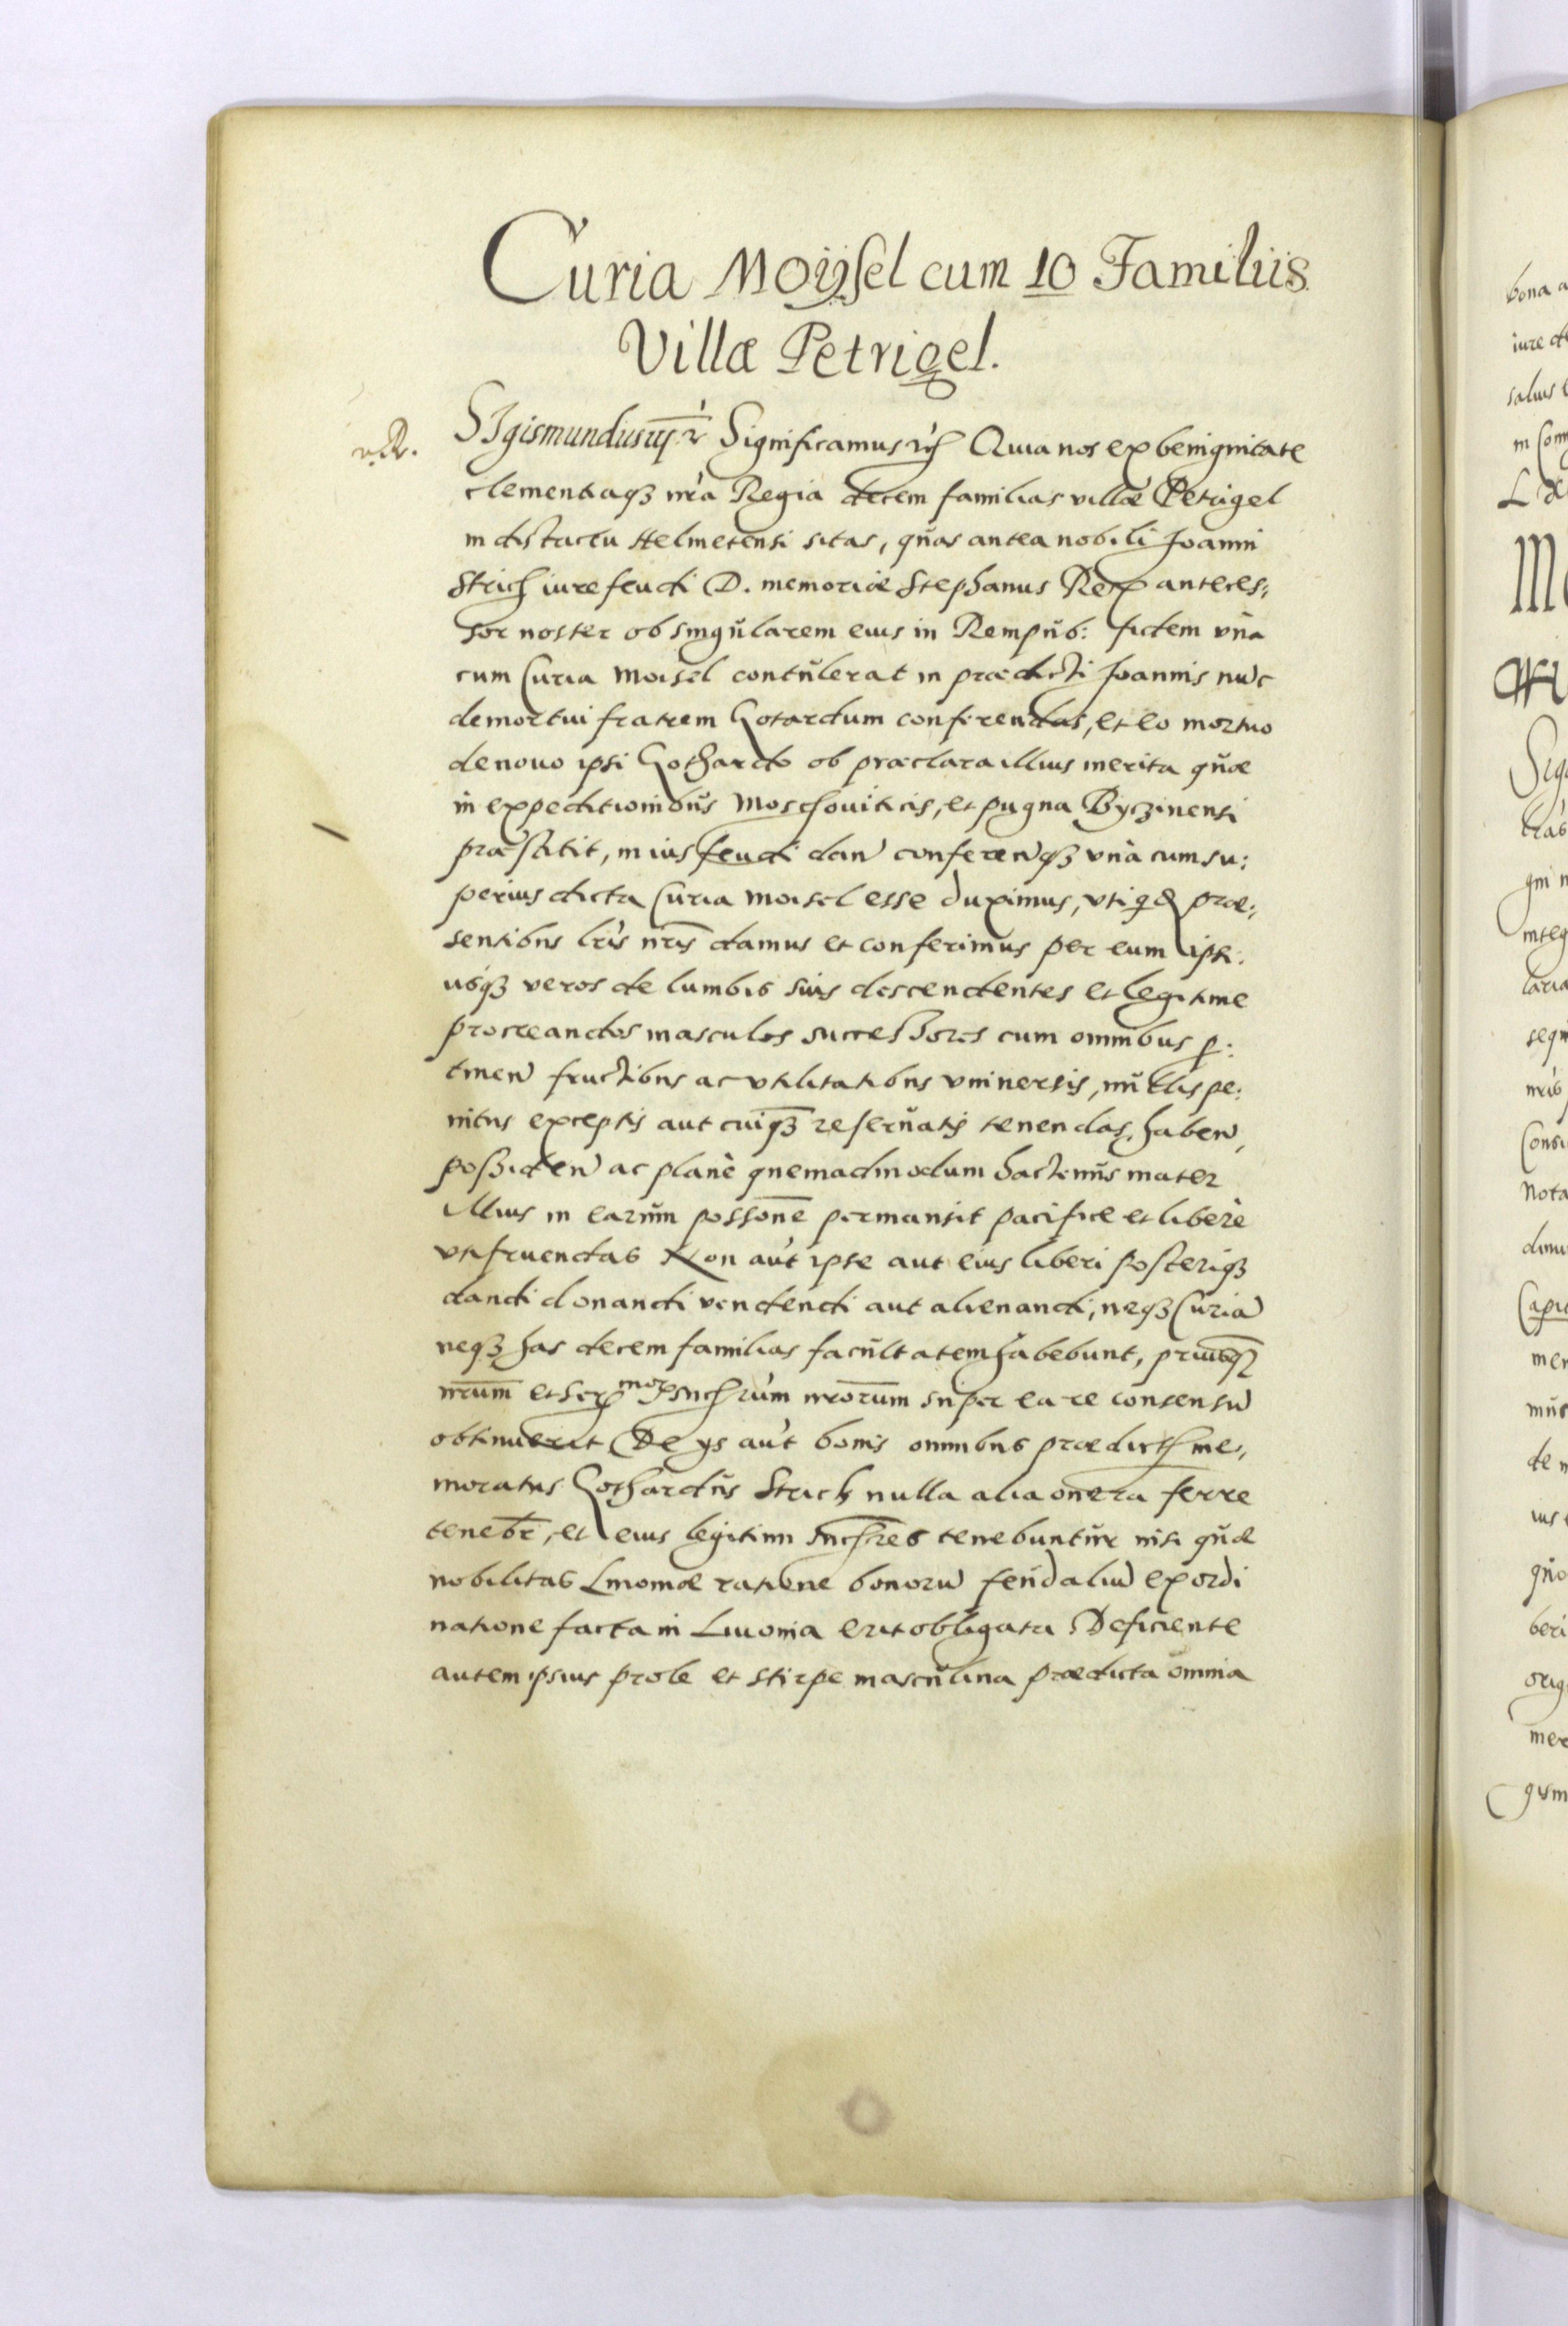 Curia Moijsel cum 10 Familiis
Villæ Petrigel.
SIgismundus iij Significamus Quia nos ex benignitate
clementiaqꝫ nr̃a Regia decem familias villæ Petrigel
in districtu Helmetensi sitas, quas antea nobili Joanni
Strich iure feudi D. memoriæ Stephanus Rex anteces,
sor noster ob singularem eius in Rempub: fidem vnà
cum Curia Moisel contulerat in prædicti Joannis nũc
demortui fratrem Gotardum conferendas, et eo mortuo
de nouo ipsi Gothardo ob præclara illius merita quæ
in expeditionibus Moschouiticis, et pugna Byczinensi
præstitit, in ius feudi dañ conferenqꝫ vnà cum su:
perius dicta Curia Moisel esse duximus, vti qꝫ præ,
sentibus lr̃is nr̃is damus et conferimus per eum ipsi:
usqꝫ veros de lumbis suis descendentes et legitime
procreandos masculos successores cum omnibus p̱:
tineñ fructibus ac vtilitatibus vniuersis, nullis pe:
nitus exceptis aut cuiqꝫ reseruatis tenendas, habeñ,
possideñ ac planè quemadmodum hactenus mater
illius in earum possonẽ permansit pacifice et liberè
vtifruendas Non aũt ipse aut eius liberi posteriqꝫ
dandi donandi vendendi aut alienandi, neqꝫ Curiã
neqꝫ has decem familias facultatem habebunt, priusqꝫ
nr̃um et Ser mor, Succ rum nr̃orum super ea re consensũ
obtinuerit De ijs aũt bonis omnibus prædict me,
moratus Gothardus Strich nulla alia onera ferre
tenebr̃, et eius legitimi Succr̃es tenebuntur nisi quæ
nobilitas Liuoniæ ratione bonorũ feudaliũ ex ordi
natione facta in Liuonia erit obligata Deficiente
autem ipsius prole et stirpe masculina prædicta omnia